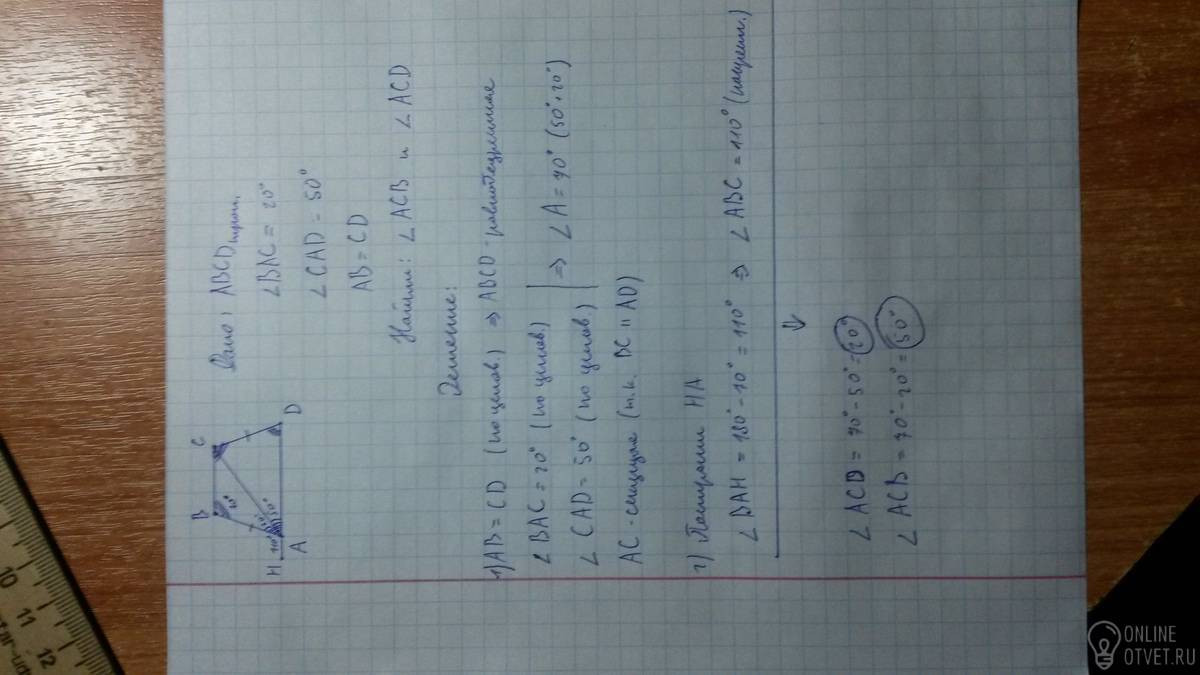 Дано: ABCD трап.
∠BAC = 20°
∠CAD = 50°
AB = CD
Найти: ∠ACB и ∠ACD
Решение:
1) AB = CD (по услов.) ⇒ ABCD - равнобедренная
∠BAC = 20° (по услов.)
∠CAD = 50° (по услов.) | ⇒ ∠A = 70° (50°+20°)
AC - секущая (т.к. BC || AD)
2) Построим HA
∠BAH = 180° - 70° = 110° ⇒ ∠ABC = 110° (накрест.)
∠ACD = 70° - 50° = 20°
∠ACB = 70° - 20° = 50°
B
C
H
A
D
20°
50°
10
11
12
ONLINE
OTVET.RU